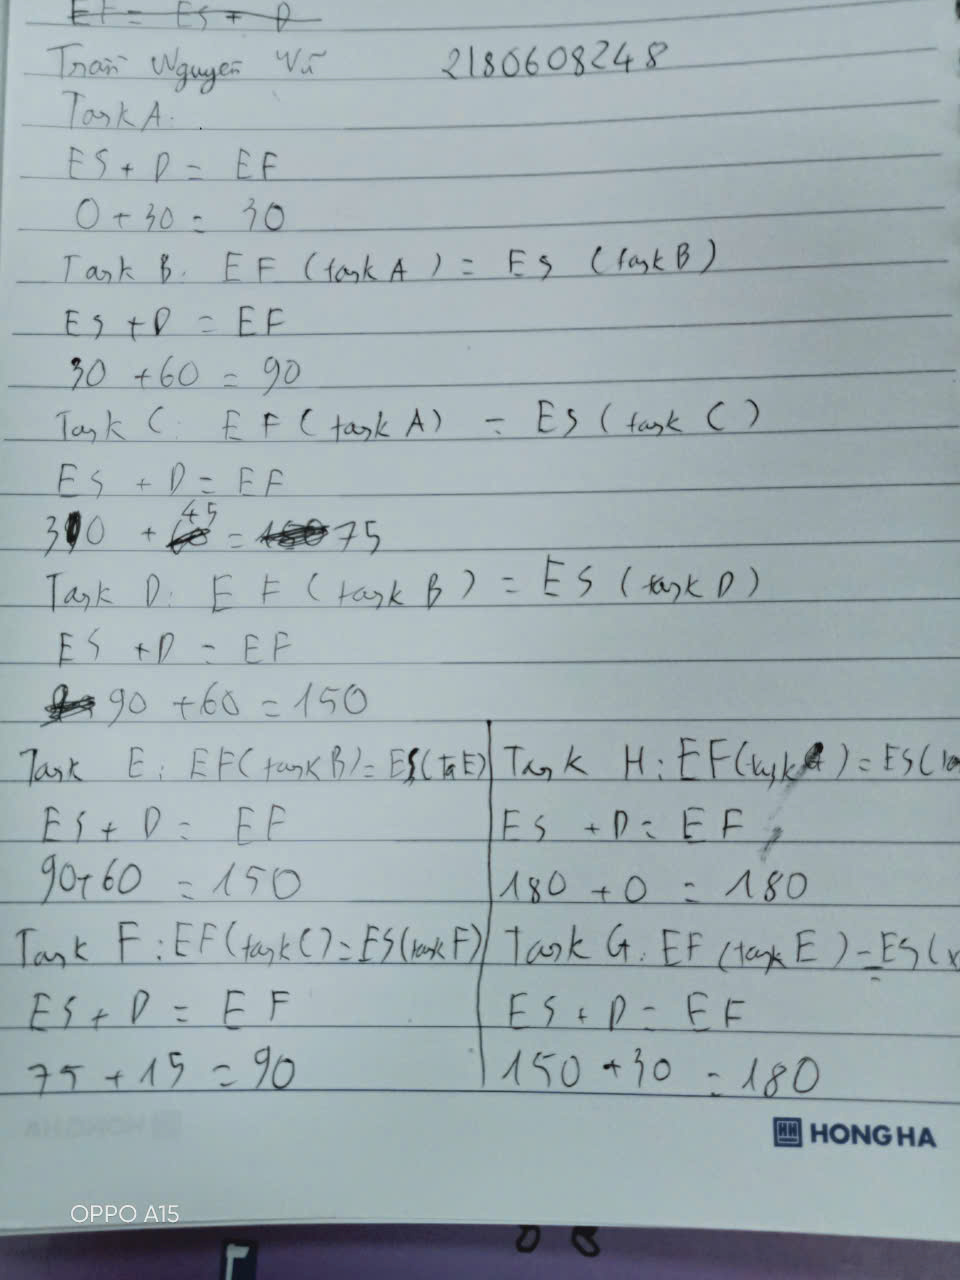 EF = ES + D
Trần Nguyên Vũ 2180608248
Task A:
ES + D = EF
0 + 30 = 30
Task B: EF (task A) = ES (task B)
ES + D = EF
30 + 60 = 90
Task C: EF (task A) = ES (task C)
ES + D = EF
30 + 45 = 75
Task D: EF (task B) = ES (task D)
ES + D = EF
90 + 60 = 150
Task E: EF(task B) = ES(ta E)
ES + D = EF
90 + 60 = 150
Task F: EF(task C) = ES(task F)
ES + D = EF
75 + 15 = 90
Task H: EF(task G) = ES(
ES + D = EF
180 + 0 = 180
Task G: EF (task E) = ES(
ES + D = EF
150 + 30 = 180
HONG HA
OPPO A15